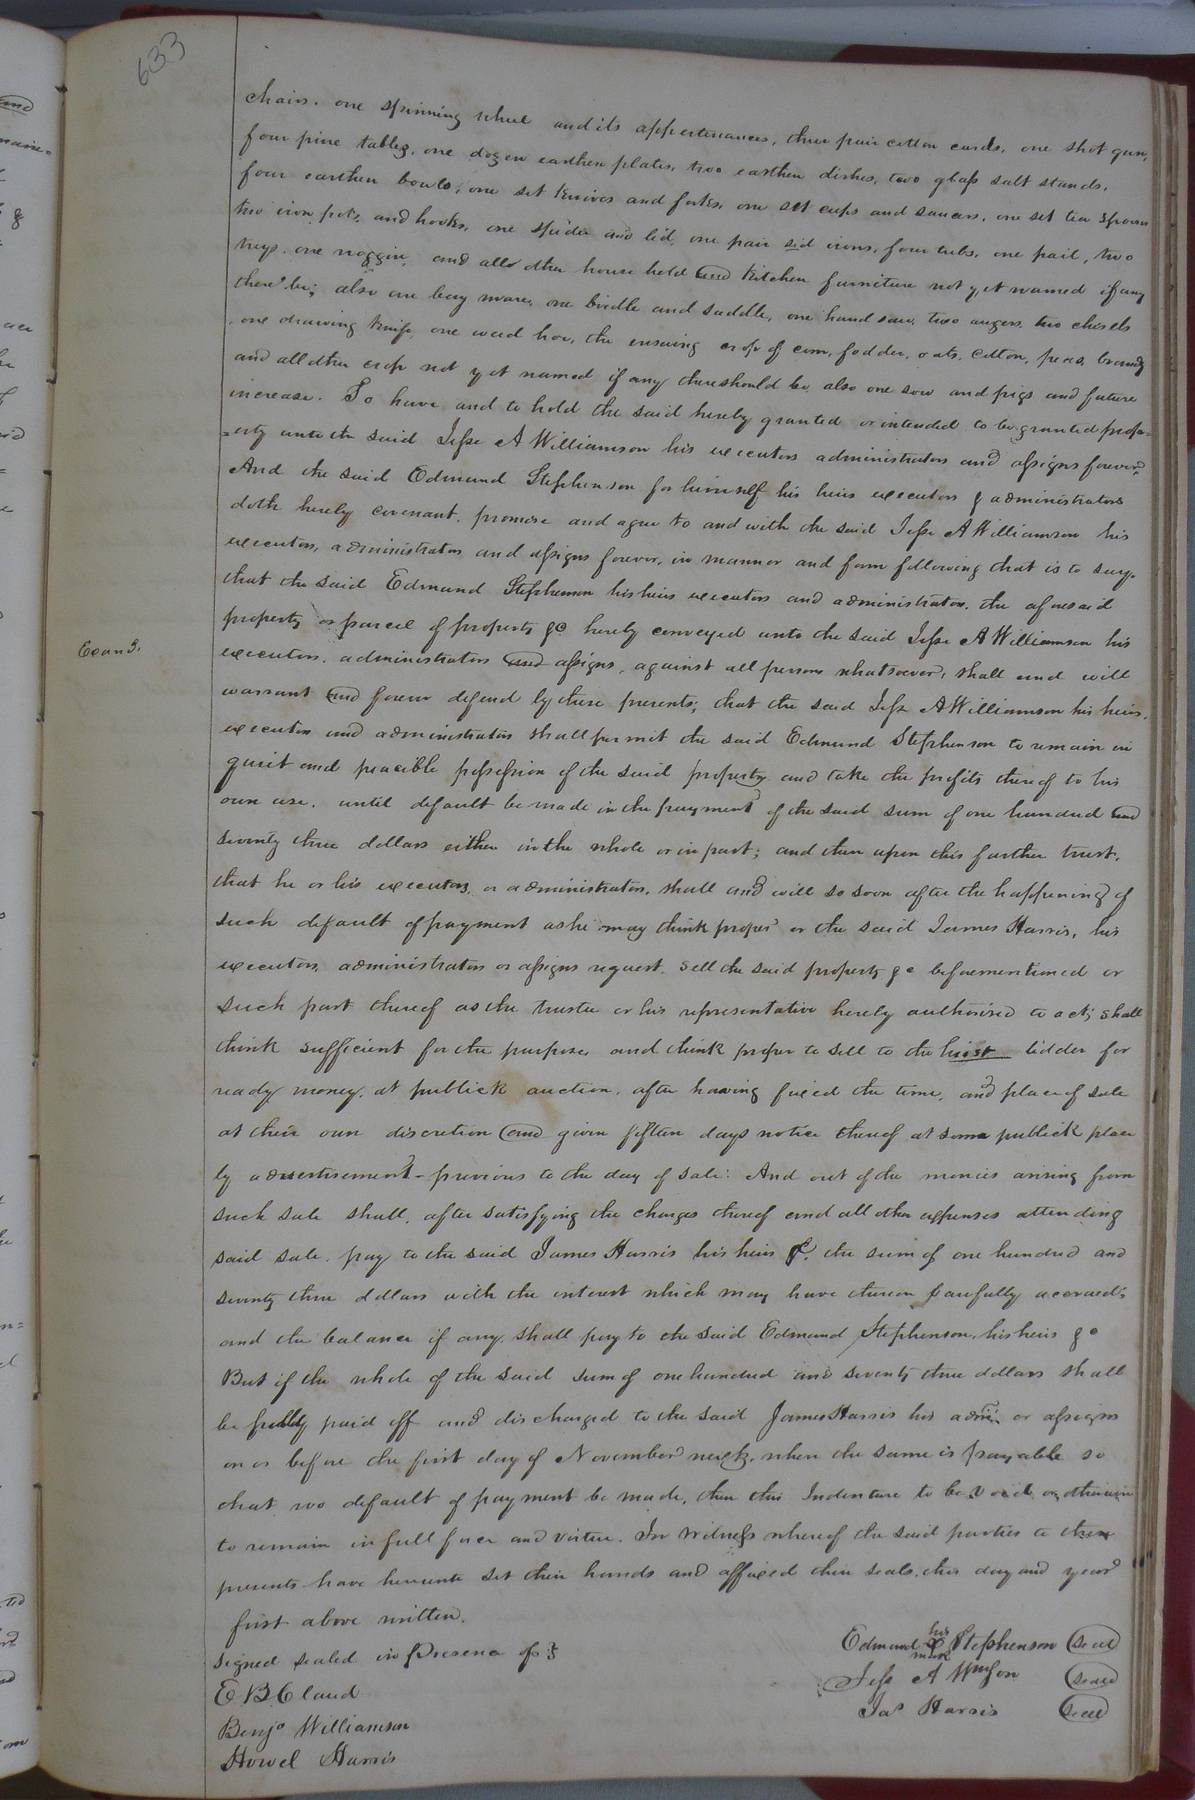 633
chairs. one spinning wheel and its appertenances, three pair cotton cards, one shot gun,
four pine tables, one dozen earthen plates, two earthen dishes, two glass salt stands,
four earthen bowls, one set knives and forks, one set cups and saucers, one set tea spoons
two iron pots, and hooks, one spider and lid, one pair sid irons, four tubs, one pail, two
trays. one noggin, and all other house hold and kitchen furniture not yet named if any
there be; also one bay mare, one bridle and saddle, one hand saw, two augers, two chisels
, one drawing knife, one weed hoe, the ensuing crop of corn, fodder, oats, cotton, peas, brandy
and all other crop not yet named if any there should be also one sow and pigs and future
increase. To have and to hold the said hereby granted or intended to be granted prop-
=erty unto the said Jesse A Williamson his executors administrators and assigns forever,
And the said Edmund Stephenson for himself his heirs executors & administrators
doth hereby covenant, promise and agree to and with the said Jesse A Williamson his
executors, administrators and assigns forever, in manner and form following that is to say,
that the said Edmund Stephenson his heirs executors and administrators, the aforesaid
property or parcel of property &c hereby conveyed unto the said Jesse A Williamson his
Examd.
executors, administrators and assigns, against all persons whatsoever, shall and will
warrant and forever defend by these presents; that the said Jesse A Williamson his heirs,
executors and administrators shall permit the said Edmund Stephenson to remain in
quiet and peacible possession of the said property and take the profits thereof to his
own use, until default be made in the payment of the said sum of one hundred and
seventy three dollars either in the whole or in part; and then upon this further trust,
that he or his executors, or administrators, shall and will so soon after the happening of
such default of payment as he may think proper or the said James Harris, his
executors, administrators or assigns request, sell the said property &c beforementioned or
such part thereof as the trustee or his representative hereby authorised to act; shall
think sufficient for the purpose, and think proper to sell to the hiest bidder for
ready money, at publick auction, after having fixed the time, and place of sale
at their own discretion and given fifteen days notice thereof at some publick place
by advertisement - previous to the day of sale: And out of the monies arising from
such sale shall, after satisfying the charges thereof and all other expenses attending
said sale, pay to the said James Harris his heirs &c. the sum of one hundred and
seventy three dollars with the interest which may have thereon lawfully accrued,
and the balance if any, shall pay to the said Edmund Stephenson, his heirs &c
But if the whole of the said sum of one hundred and seventy three dollars shall
be fully paid off and discharged to the said James Harris his admr. or assigns
on or before the first day of November next, when the same is payable so
that no default of payment be made, then this Indenture to be void or otherwise
to remain in full force and virtue. In Witness whereof the said parties to these
presents have hereunto set their hands and affixed their seals, this day and year
first above written.
Signed sealed in Presence of }
E B Claud
Benjn Williamson
Howel Harris
his
Edmund X Stephenson (seal)
mark
Jesse A Wmson (seal)
Jas Harris (seal)